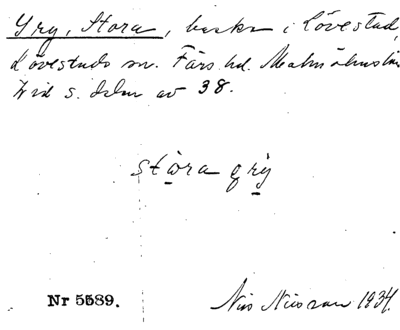 Gry, Stora, backe i Lövestad,
Lövestads sn. Färs hd. Malmöhus län
Vid s. delen av 38.
stora gry
Nr 5589.
Nils Nilsson 1934.